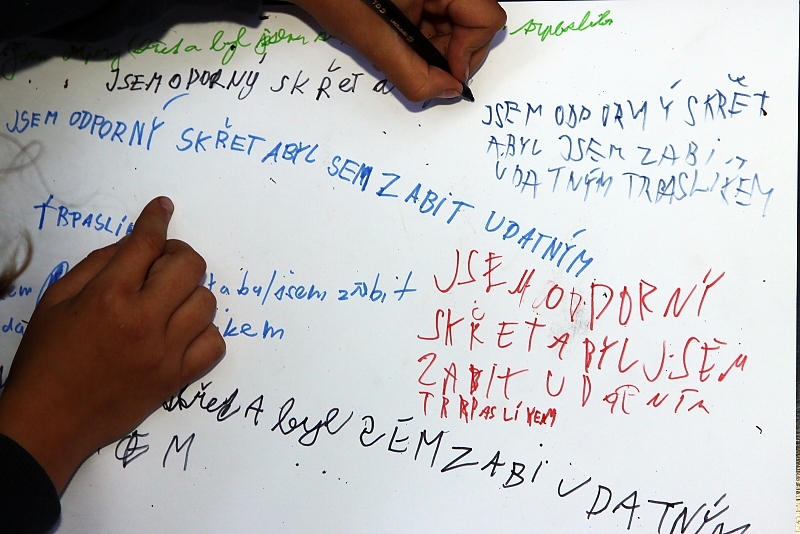 a byl jsem
JSEM ODPORNÝ SKŘET a
JSEM ODPORNÝ SKŘET
A BYL JSEM ZABI
UDATNÝM TRPASLÍKEM
JSEM ODPORNÝ SKŘET A BYL SEM ZABIT UDATNÝM
TRPASLÍ
em t a byl jsem zabit
dá íkem
JSEM ODPORNÝ
SKŘET A BYL JSEM
ZABIT
TRRPASLÍKEM
skřet A byl ZEM ZABI UDATNÝM
EM